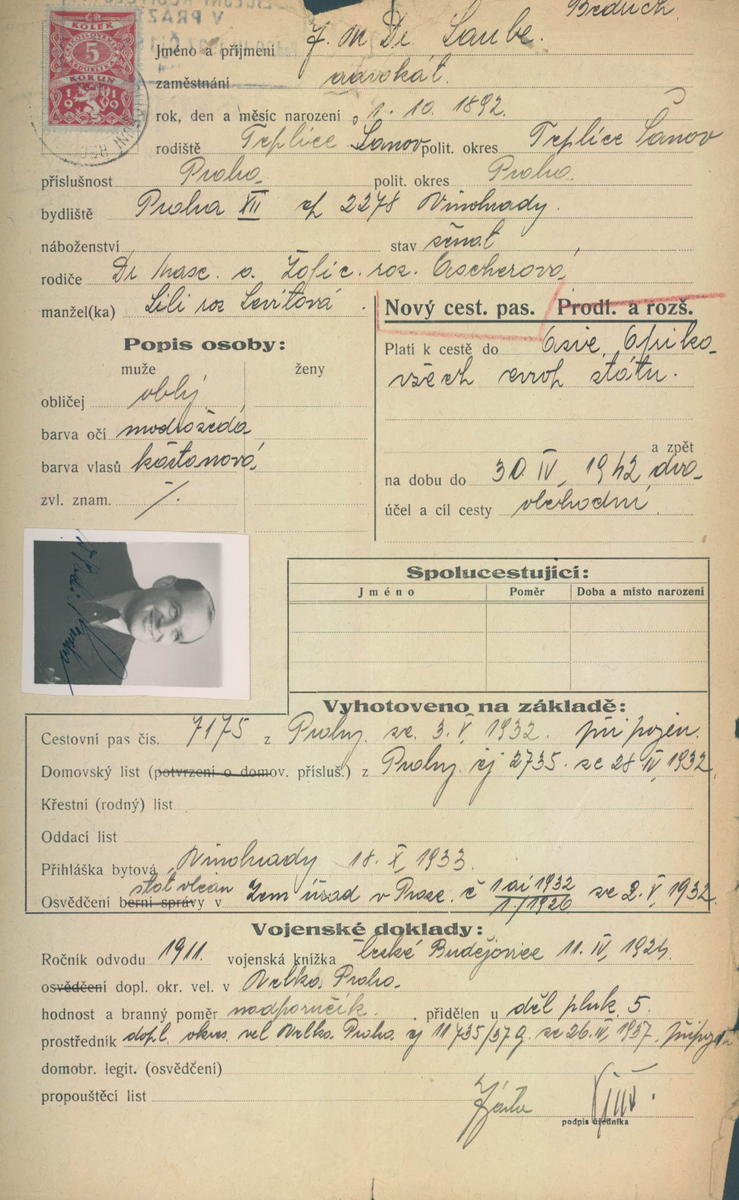 Bedřich.
ČR
KOLEK
5
KORUN
1919
V PRAZE
Jméno a příjmení J. M Dr Laube.
zaměstnání advokát.
rok, den a měsíc narození 1. 10. 1892.
rodiště Teplice Šanov polit. okres Teplice Šanov
příslušnost Praha polit. okres Praha.
bydliště Praha XII čp 2278 Vinohrady.
náboženství stav ženat
rodiče Dr a. Žofie. roz. Ascherová
manžel(ka) Lili roz Levitová.
Nový cest. pas. Prodl. a rozš.
Popis osoby:
muže ženy
obličej oblý
barva očí modrošedá
barva vlasů kaštanová
zvl. znam. /.
Platí k cestě do Asie, Afriky
všech evrop států.
a zpět
na dobu do 30. IV. 1942
účel a cíl cesty obchodní.
Spolucestující:
Jméno Poměr Doba a místo narození
Vyhotoveno na základě:
Cestovní pas čís. 7175 z Prahy. ze. 3. V. 1932. připojen.
Domovský list (potvrzení o domov. přísluš.) z Prahy. čj 2735. ze 28 IV, 1932.
Křestní (rodný) list
Oddací list
Přihláška bytová Vinohrady 18. X, 1933.
stát občan
Osvědčení berní správy v Zem úřad v Praze. č 1 ai 1932 / 1/1926 ze 2. V, 1932.
Vojenské doklady:
Ročník odvodu 1911. vojenská knížka České Budějovice 11. IV, 1924.
osvědčení dopl. okr. vel. v Velká Praha.
hodnost a branný poměr nadporučík. přidělen u děl pluk 5.
prostředník dopl. okres. vel Velká Praha čj 11735/37 ze 26. IV, 1937. připojen
domobr. legit. (osvědčení)
propouštěcí list
podpis úředníka